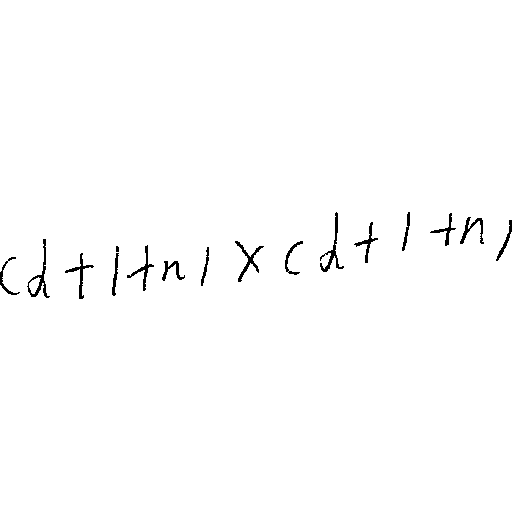 (d+1+n) × (d+1+n)